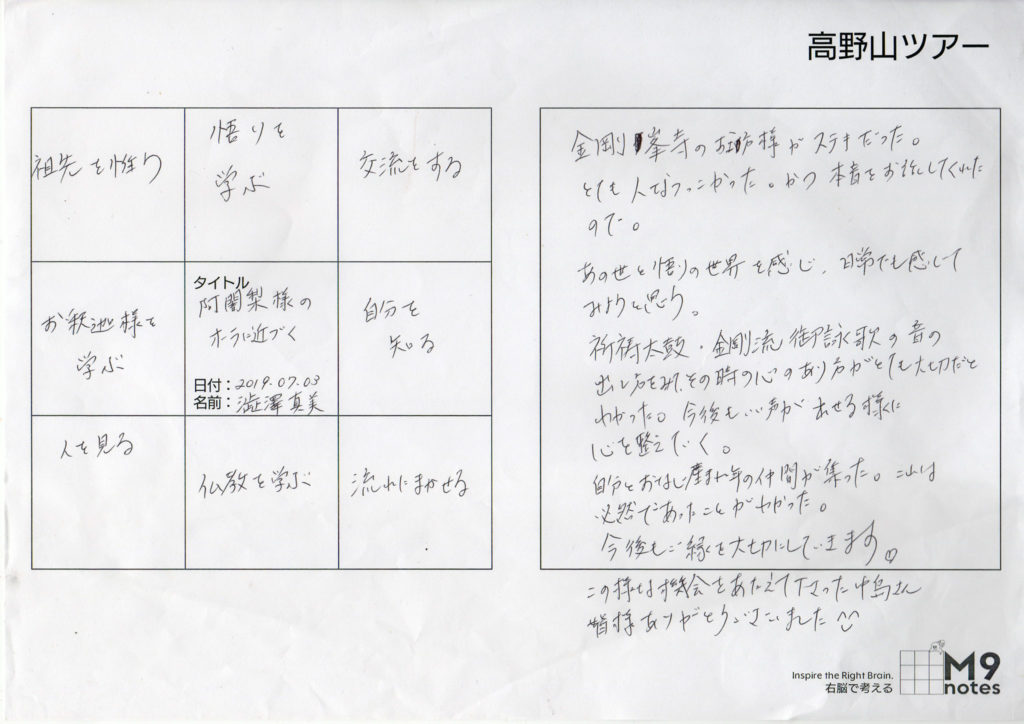 高野山ツアー
祖先を悟り
悟りを
学ぶ
交流をする
お釈迦様を
学ぶ
タイトル
阿闍梨様の
オーラに近づく
日付：2019.07.03
名前：澁澤真美
自分を
知る
人を見る
仏教を学ぶ
流れにまかせる
金剛峯寺のお坊様がステキだった。
とても人なつっこかった。かつ本音をお話してくれた
ので。
あの世と悟りの世界を感じ、日常でも感じて
みようと思う。
祈祷太鼓・金剛流御詠歌の音の
出し方をみて、その時の心のあり方がとても大切だと
わかった。今後もいい声が出せる様に
心を整えていく。
自分とおなじ産まれ年の仲間が集った。これは
必然であったことがわかった。
今後もご縁を大切にしていきます♡
この様な機会をあたえて下さった中島さん
皆様ありがとうございました
Inspire the Right Brain.
右脳で考える
M9
notes